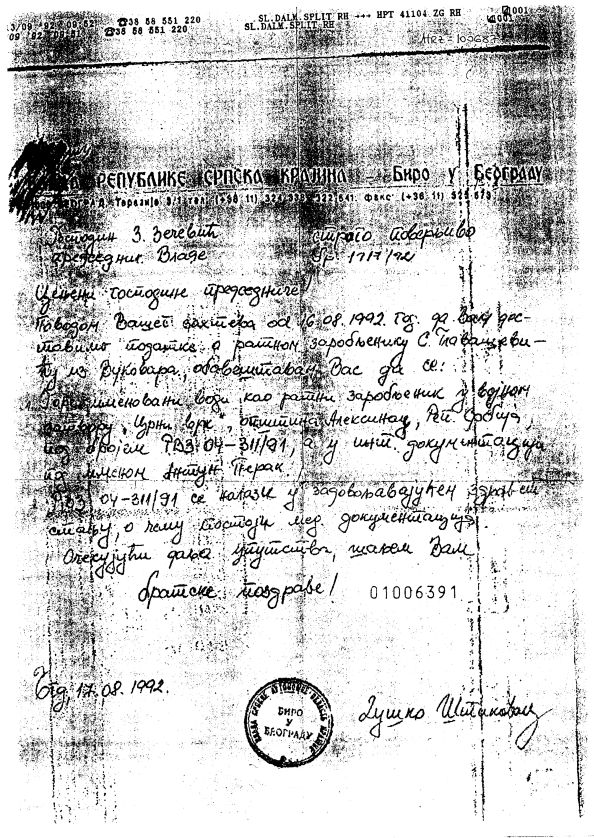 ☎38 58 551 220
SL.DALM.SPLIT RH →→→ HPT 41104 ZG RH
001
☎38 58 551 220
SL.DALM.SPLIT RH
001
РЕПУБЛИКЕ СРПСКА КРАЈИНА - Биро у Београду
Теразије 3/1 тел. (+38 11) Факс (+38 11)
Господин З. Зечевић
строго поверљиво
председник Владе
1717/92
Цењени господине председниче!
Поводом Вашег захтева од 16.08.1992. год. да Вам дос-
тавимо податке о ратном заробљенику С. Главашеви-
ћу из Вуковара, обавештавам Вас да се:
води као ратни заробљеник у војном
затвору "Црни врх", општина Алексинац, Реп. Србија,
под бројем РВЗ 04-311/91, а у инт. документацији
под именом Антун Перак.
РВЗ 04-311/91 се налази у задовољавајућем здрав.
стању, о чему постоји мед. документација.
Очекујући даља упутства, шаљем Вам
братске поздраве!
01006391
Бгд, 17.08.1992.
БИРО
У
БЕОГРАДУ
Душко